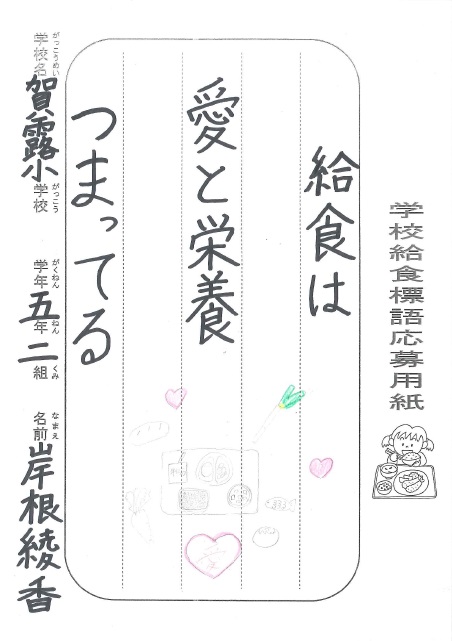 学校給食標語応募用紙
給食は
愛と栄養
つまってる
学校名 賀露小 学校 学年 五年 二組 名前 岸根綾香
がっこうめい がっこう がくねん ねん くみ なまえ